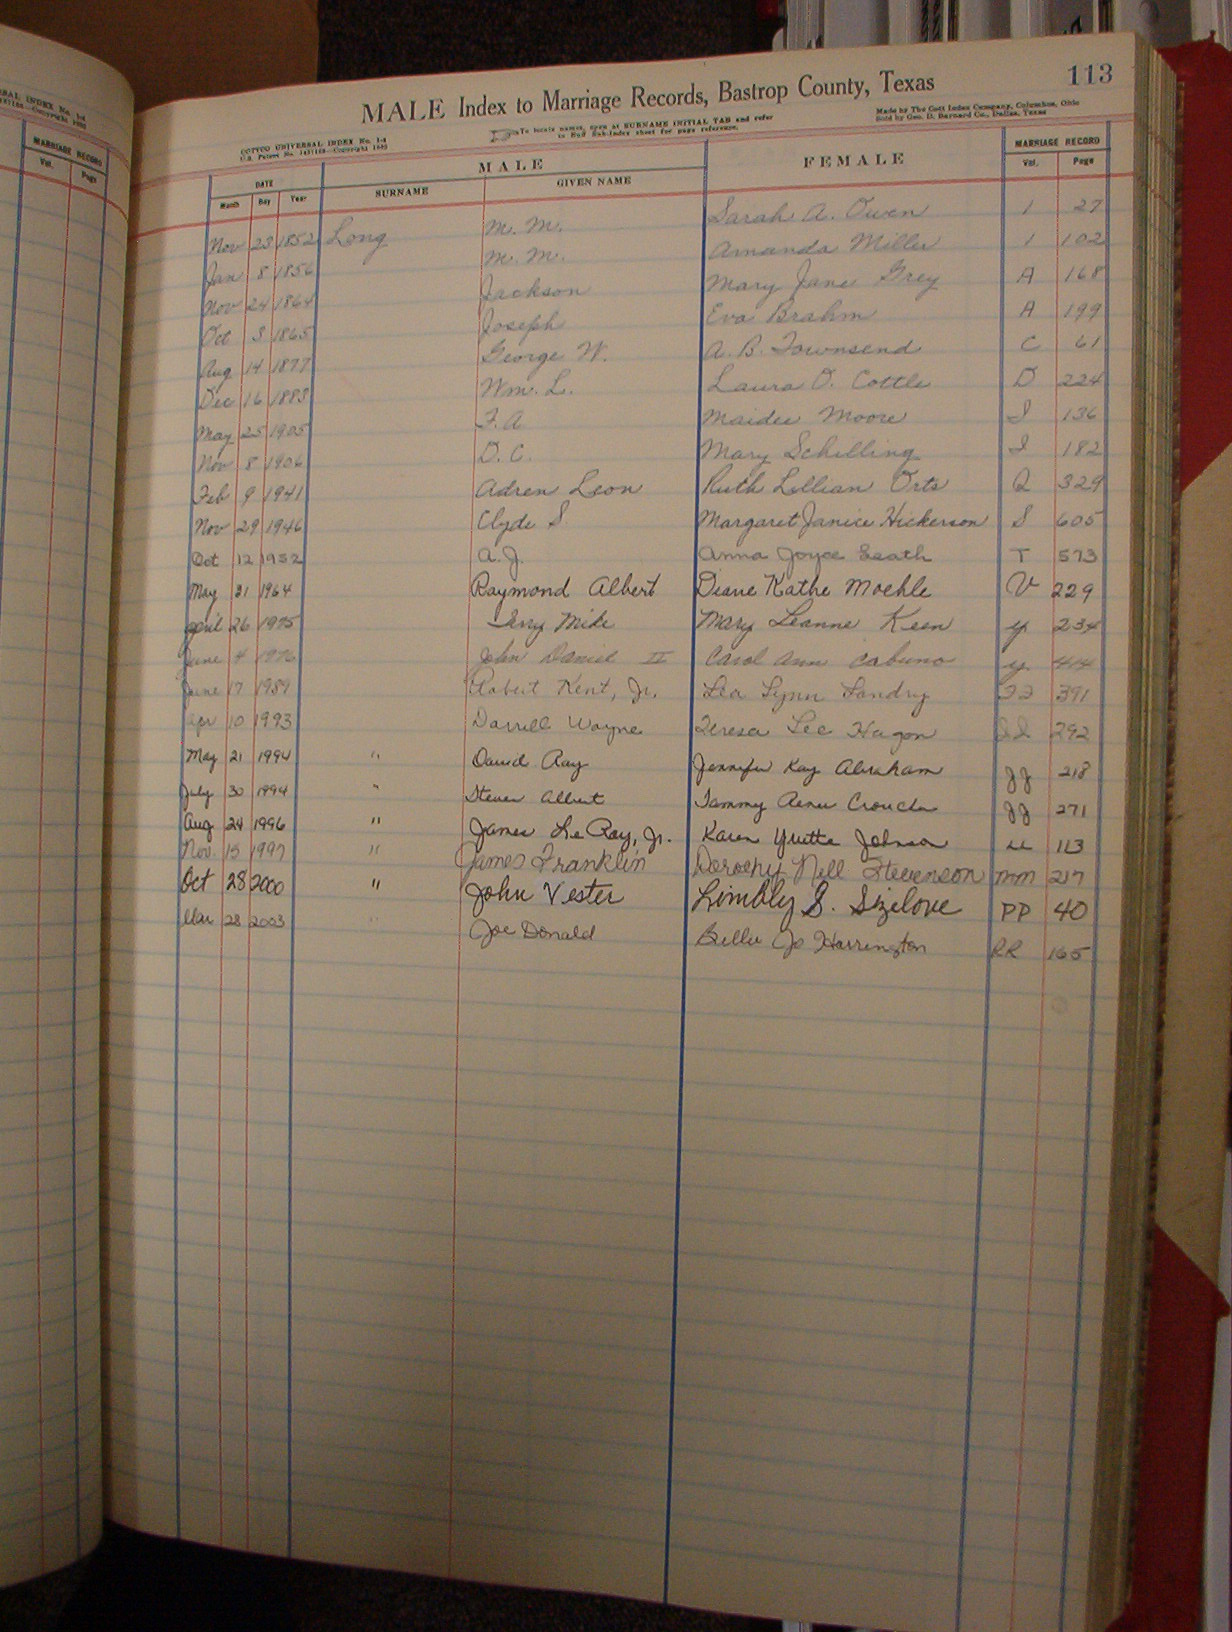 113
MALE Index to Marriage Records, Bastrop County, Texas
To locate names, open at SURNAME INITIAL TAB and refer
to Buff Sub-Index sheet for page reference.
Made by The Cott Index Company, Columbus, Ohio
Sold by Geo. D. Barnard Co., Dallas, Texas
COTTCO UNIVERSAL INDEX No. 1-4
MALE FEMALE MARRIAGE RECORD
DATE SURNAME GIVEN NAME Vol. Page
Month Day Year
MARRIAGE RECORD
Vol. Page
Nov 23 1852 Long M. M. Sarah A. Owen 1 27
Jan 8 1856 M. M. Amanda Miller 1 102
Nov 24 1864 Jackson Mary Jane Grey A 168
Oct 3 1865 Joseph Eva Brahm A 199
Aug 14 1877 George W. A. B. Townsend C 61
Dec 16 1883 Wm. L. Laura O. Cottle D 224
May 25 1905 F. A. Maidee Moore I 136
Nov 8 1906 D. C. Mary Schilling I 182
Feb 9 1941 Adren Leon Ruth Lillian Orts Q 329
Nov 29 1946 Clyde S. Margaret Janice Hickerson S 605
Oct 12 1952 A. J. Anna Joyce T 573
May 31 1964 Raymond Albert Diane Kathe Moehle V 229
April 26 1975 Mike Mary Leanne Keen y 234
June 4 1976 John Daniel II Carol Ann y 414
June 17 1989 Robert Kent, Jr. Lea Lynn Landry 391
Apr 10 1993 Darrell Wayne Teresa Lee Hagon 292
May 21 1994 " David Ray Jennifer Kay Abraham JJ 218
July 30 1994 " Steven Albert Tammy JJ 271
Aug 24 1996 " James LeRoy, Jr. Karen Yvette Johnson LL 113
Nov. 15 1997 " James Franklin Dorothy Nell Stevenson mm 217
Oct 28 2000 " John Vester Kimbly S. Sizelove PP 40
Mar 28 2003 " Joe Donald Billie Jo Harrington RR 165